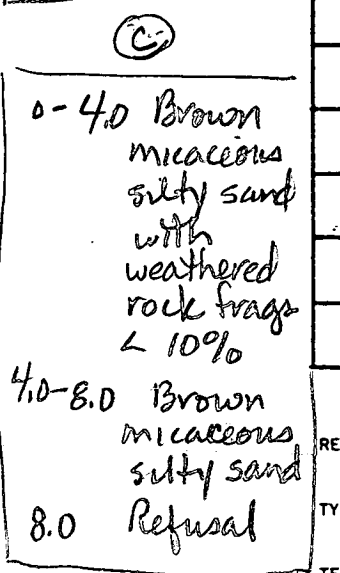 C
0-4.0 Brown
micaceous
silty sand
with
weathered
rock frags
< 10%
4.0-8.0 Brown
micaceous
silty sand
8.0 Refusal
RE
TY
TE